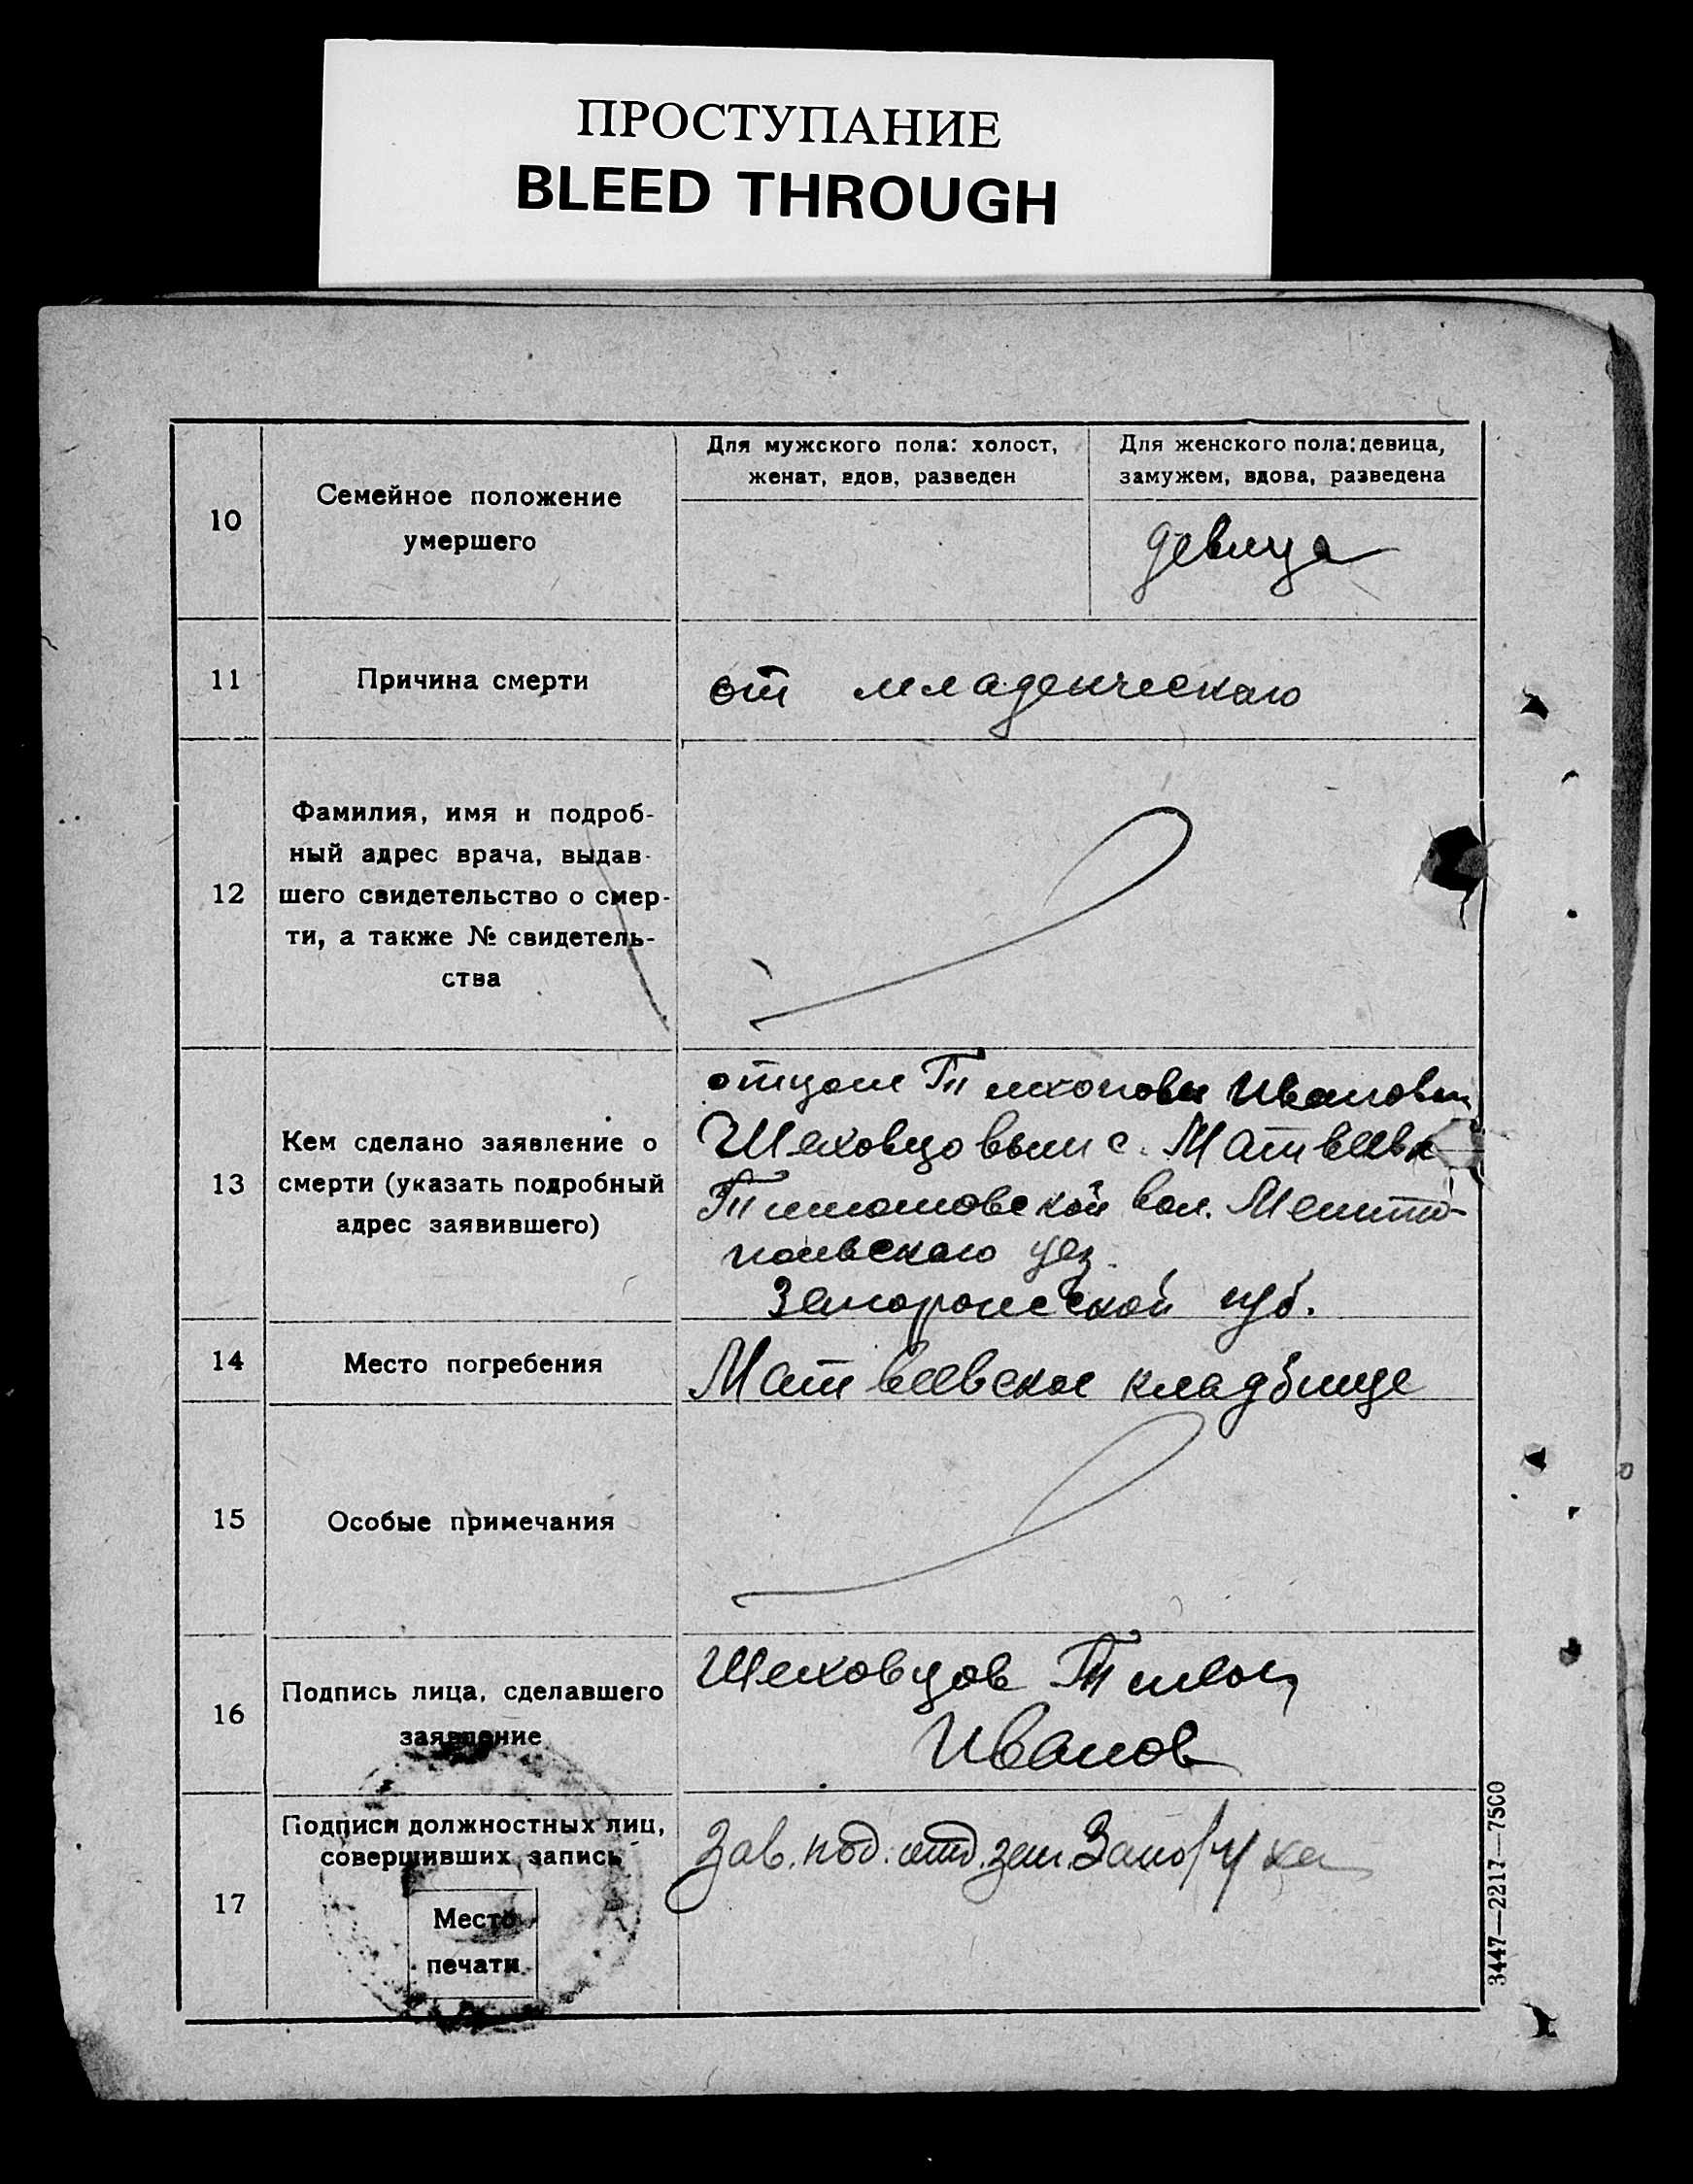 ПРОСТУПАНИЕ
BLEED THROUGH
10
Семейное положение
умершего
Для мужского пола: холост,
женат, вдов, разведен
Для женского пола: девица,
замужем, вдова, разведена
девица
11
Причина смерти
от младенческаго
12
Фамилия, имя и подроб-
ный адрес врача, выдав-
шего свидетельство о смер-
ти, а также № свидетель-
ства
13
Кем сделано заявление о
смерти (указать подробный
адрес заявившего)
отцом Тихоновы Ивановы
Шеховцовым с. Матвеевк
Тимошовской вол. Мелито-
польскаго уез.
Запорожской губ.
14
Место погребения
Матвеевское кладбище
15
Особые примечания
16
Подпись лица, сделавшего
заявление
Шеховцов Тихон
Иванов
17
Подписи должностных лиц,
совершивших запись
Место
печати
Зав. под. отд. зап.
3447—2217—7500